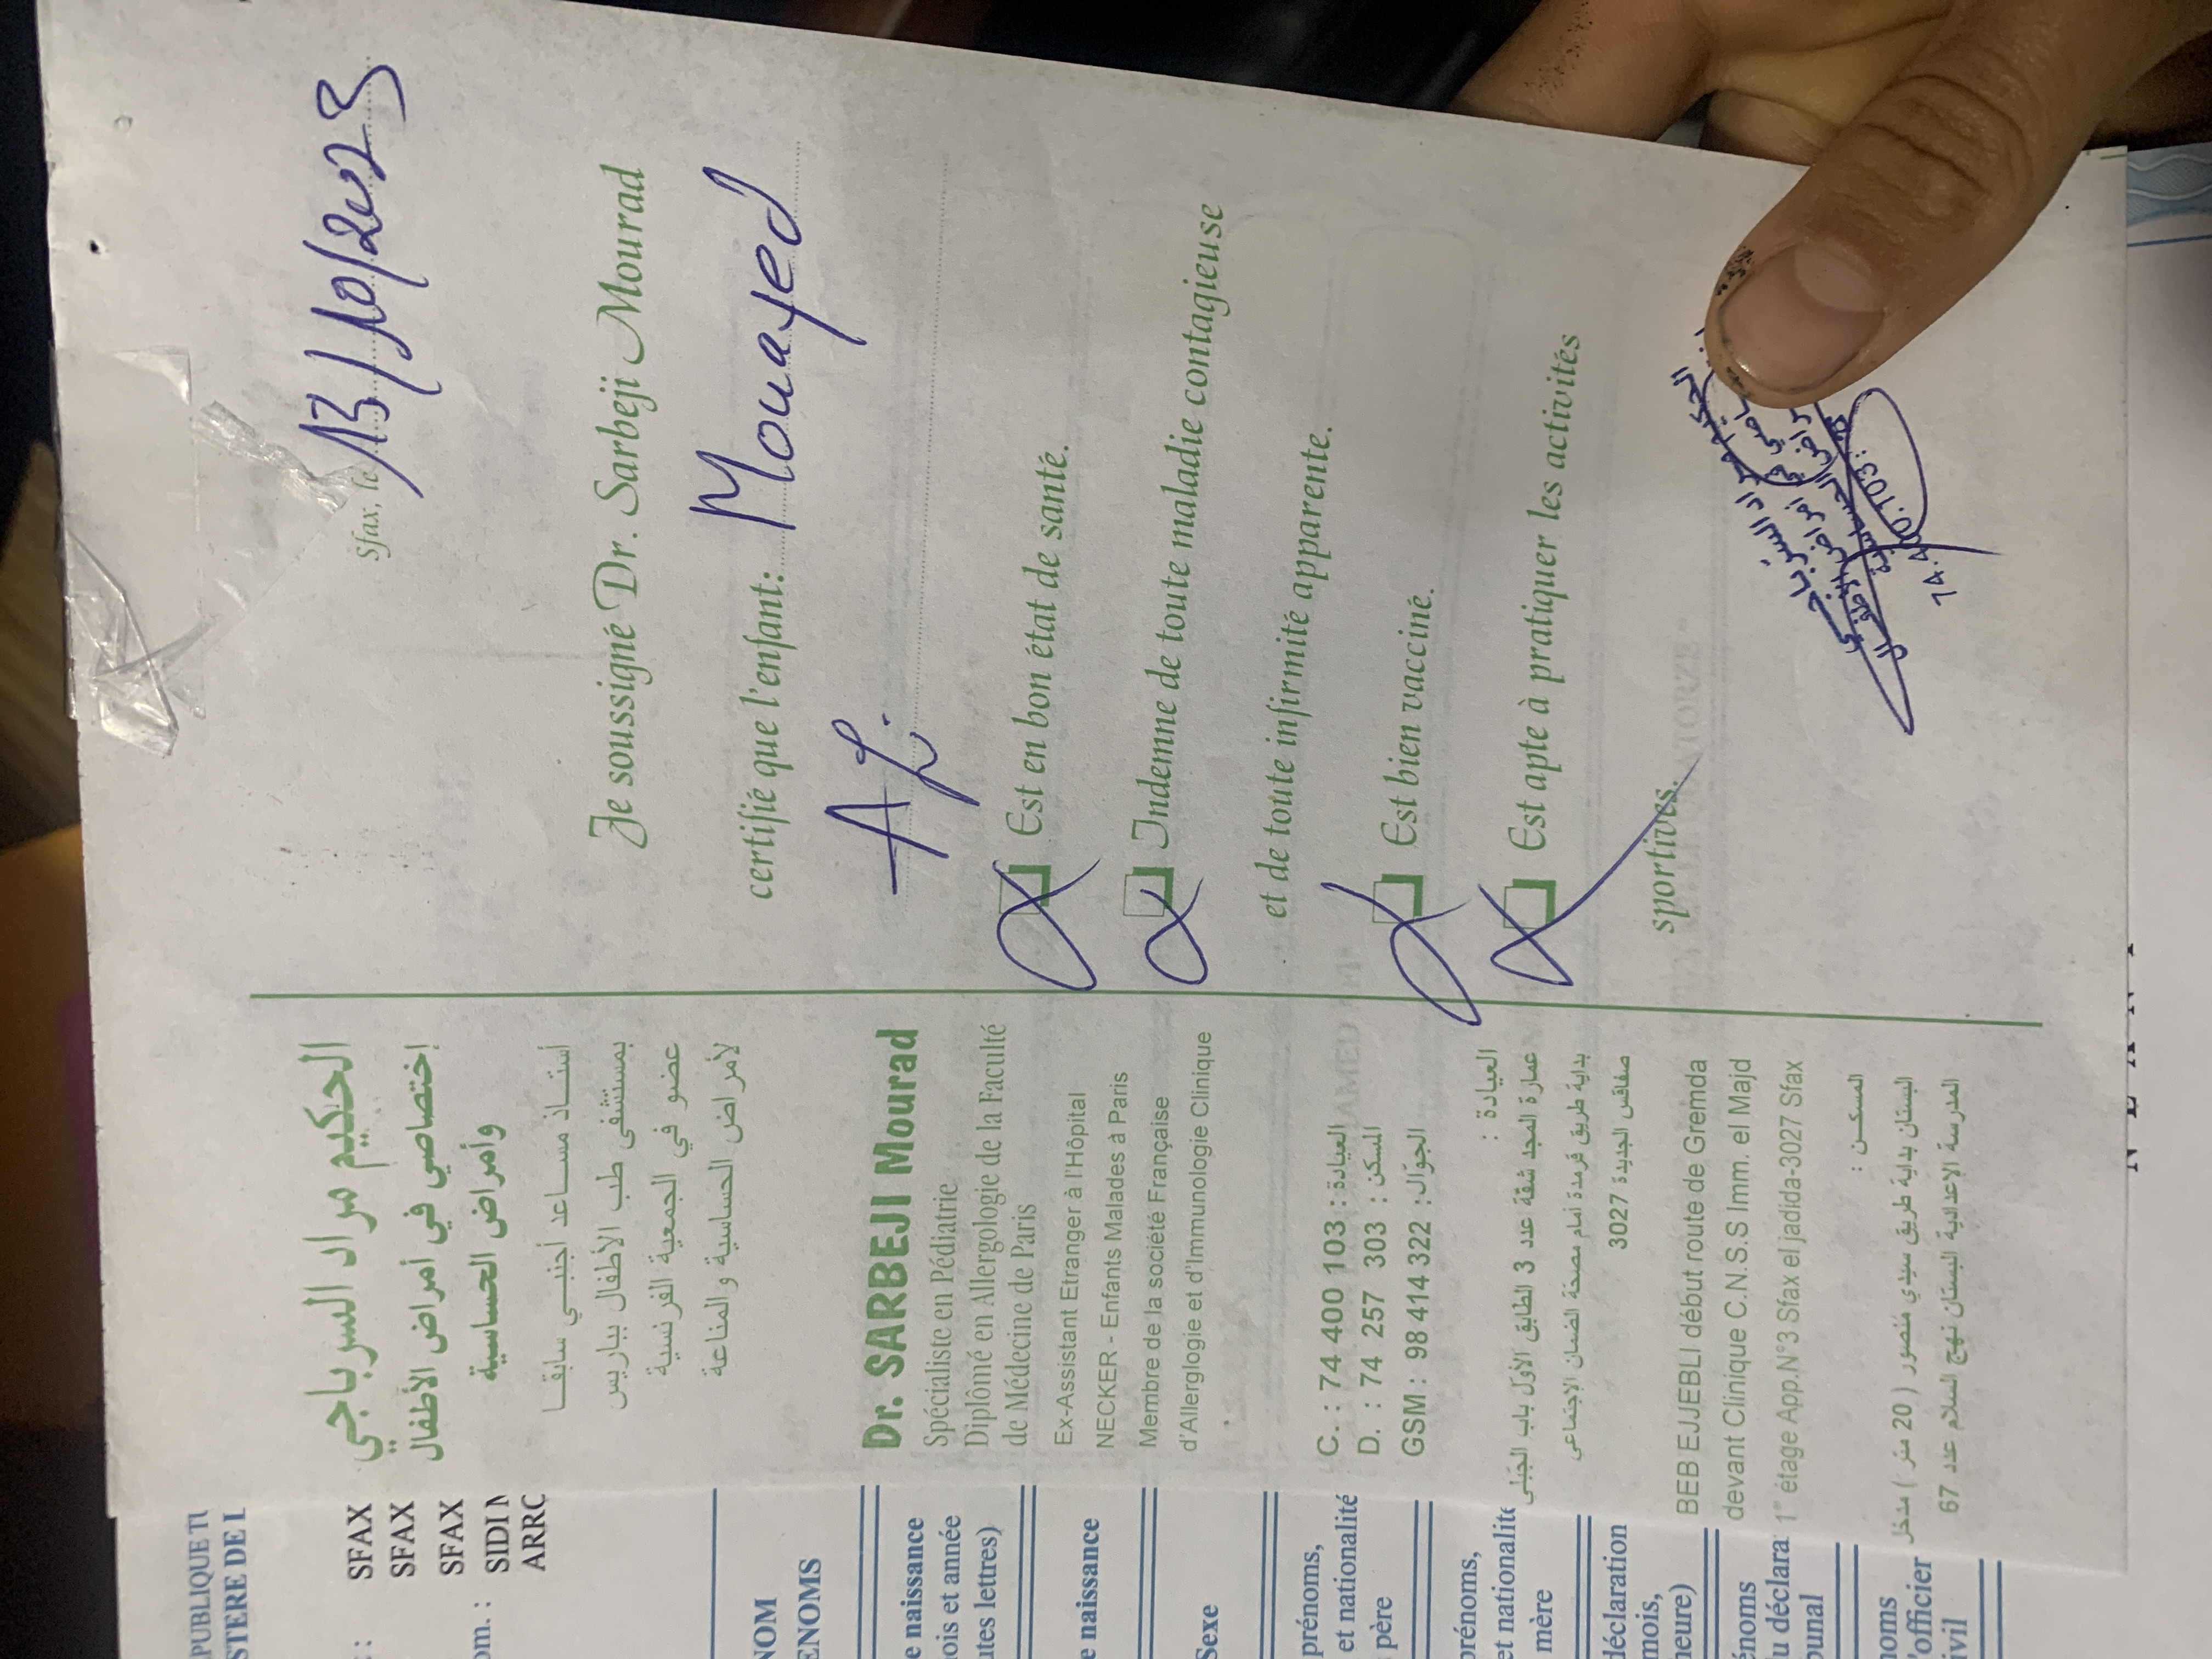 الحكيم مراد السرباجي
إختصاصي في أمراض الأطفال
وأمراض الحساسية
أستاذ مساعد أجنبي سابقا
بمستشفى طب الأطفال بباريس
عضو في الجمعية الفرنسية
لأمراض الحساسية و المناعة
Dr. SARBEJI Mourad
Spécialiste en Pédiatrie
Diplômé en Allergologie de la Faculté
de Médecine de Paris
Ex-Assistant Etranger à l'Hôpital
NECKER - Enfants Malades à Paris
Membre de la société Française
d'Allerglogie et d'Immunologie Clinique
C. : 74 400 103 : العيادة
D. : 74 257 303 : المسكن
GSM : 98 414 322 : الجوّال
العيادة :
عمارة المجد شقة عدد 3 الطابق الأول باب الجبلي
بداية طريق قرمدة أمام مصحة الضمان الإجتماعي
صفاقس الجديدة 3027
BEB EJJEBLI début route de Gremda
devant Clinique C.N.S.S Imm. el Majd
1er étage App.N°3 Sfax el jadida-3027 Sfax
المسكن :
البستان بداية طريق سيدي منصور ( 20 متر ) مدخل
المدرسة الإعدادية البستان نهج السلام عدد 67
Sfax, le 13/10/2023
Je soussigné Dr. Sarbeji Mourad
certifié que l'enfant: Mouayed
Est en bon état de santé.
Indemne de toute maladie contagieuse
et de toute infirmité apparente.
Est bien vacciné.
Est apte à pratiquer les activités
sportives.
PUBLIQUE TU
STERE DE L
: SFAX
SFAX
SFAX
om. : SIDI M
ARRO
NOM
ENOMS
e naissance
ois et année
utes lettres)
e naissance
Sexe
prénoms,
et nationalité
père
prénoms,
et nationalité
mère
déclaration
mois,
heure)
énoms
u déclara
bunal
noms
'officier
ivil